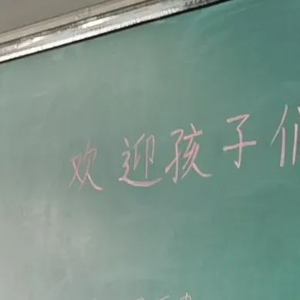 欢迎孩子们